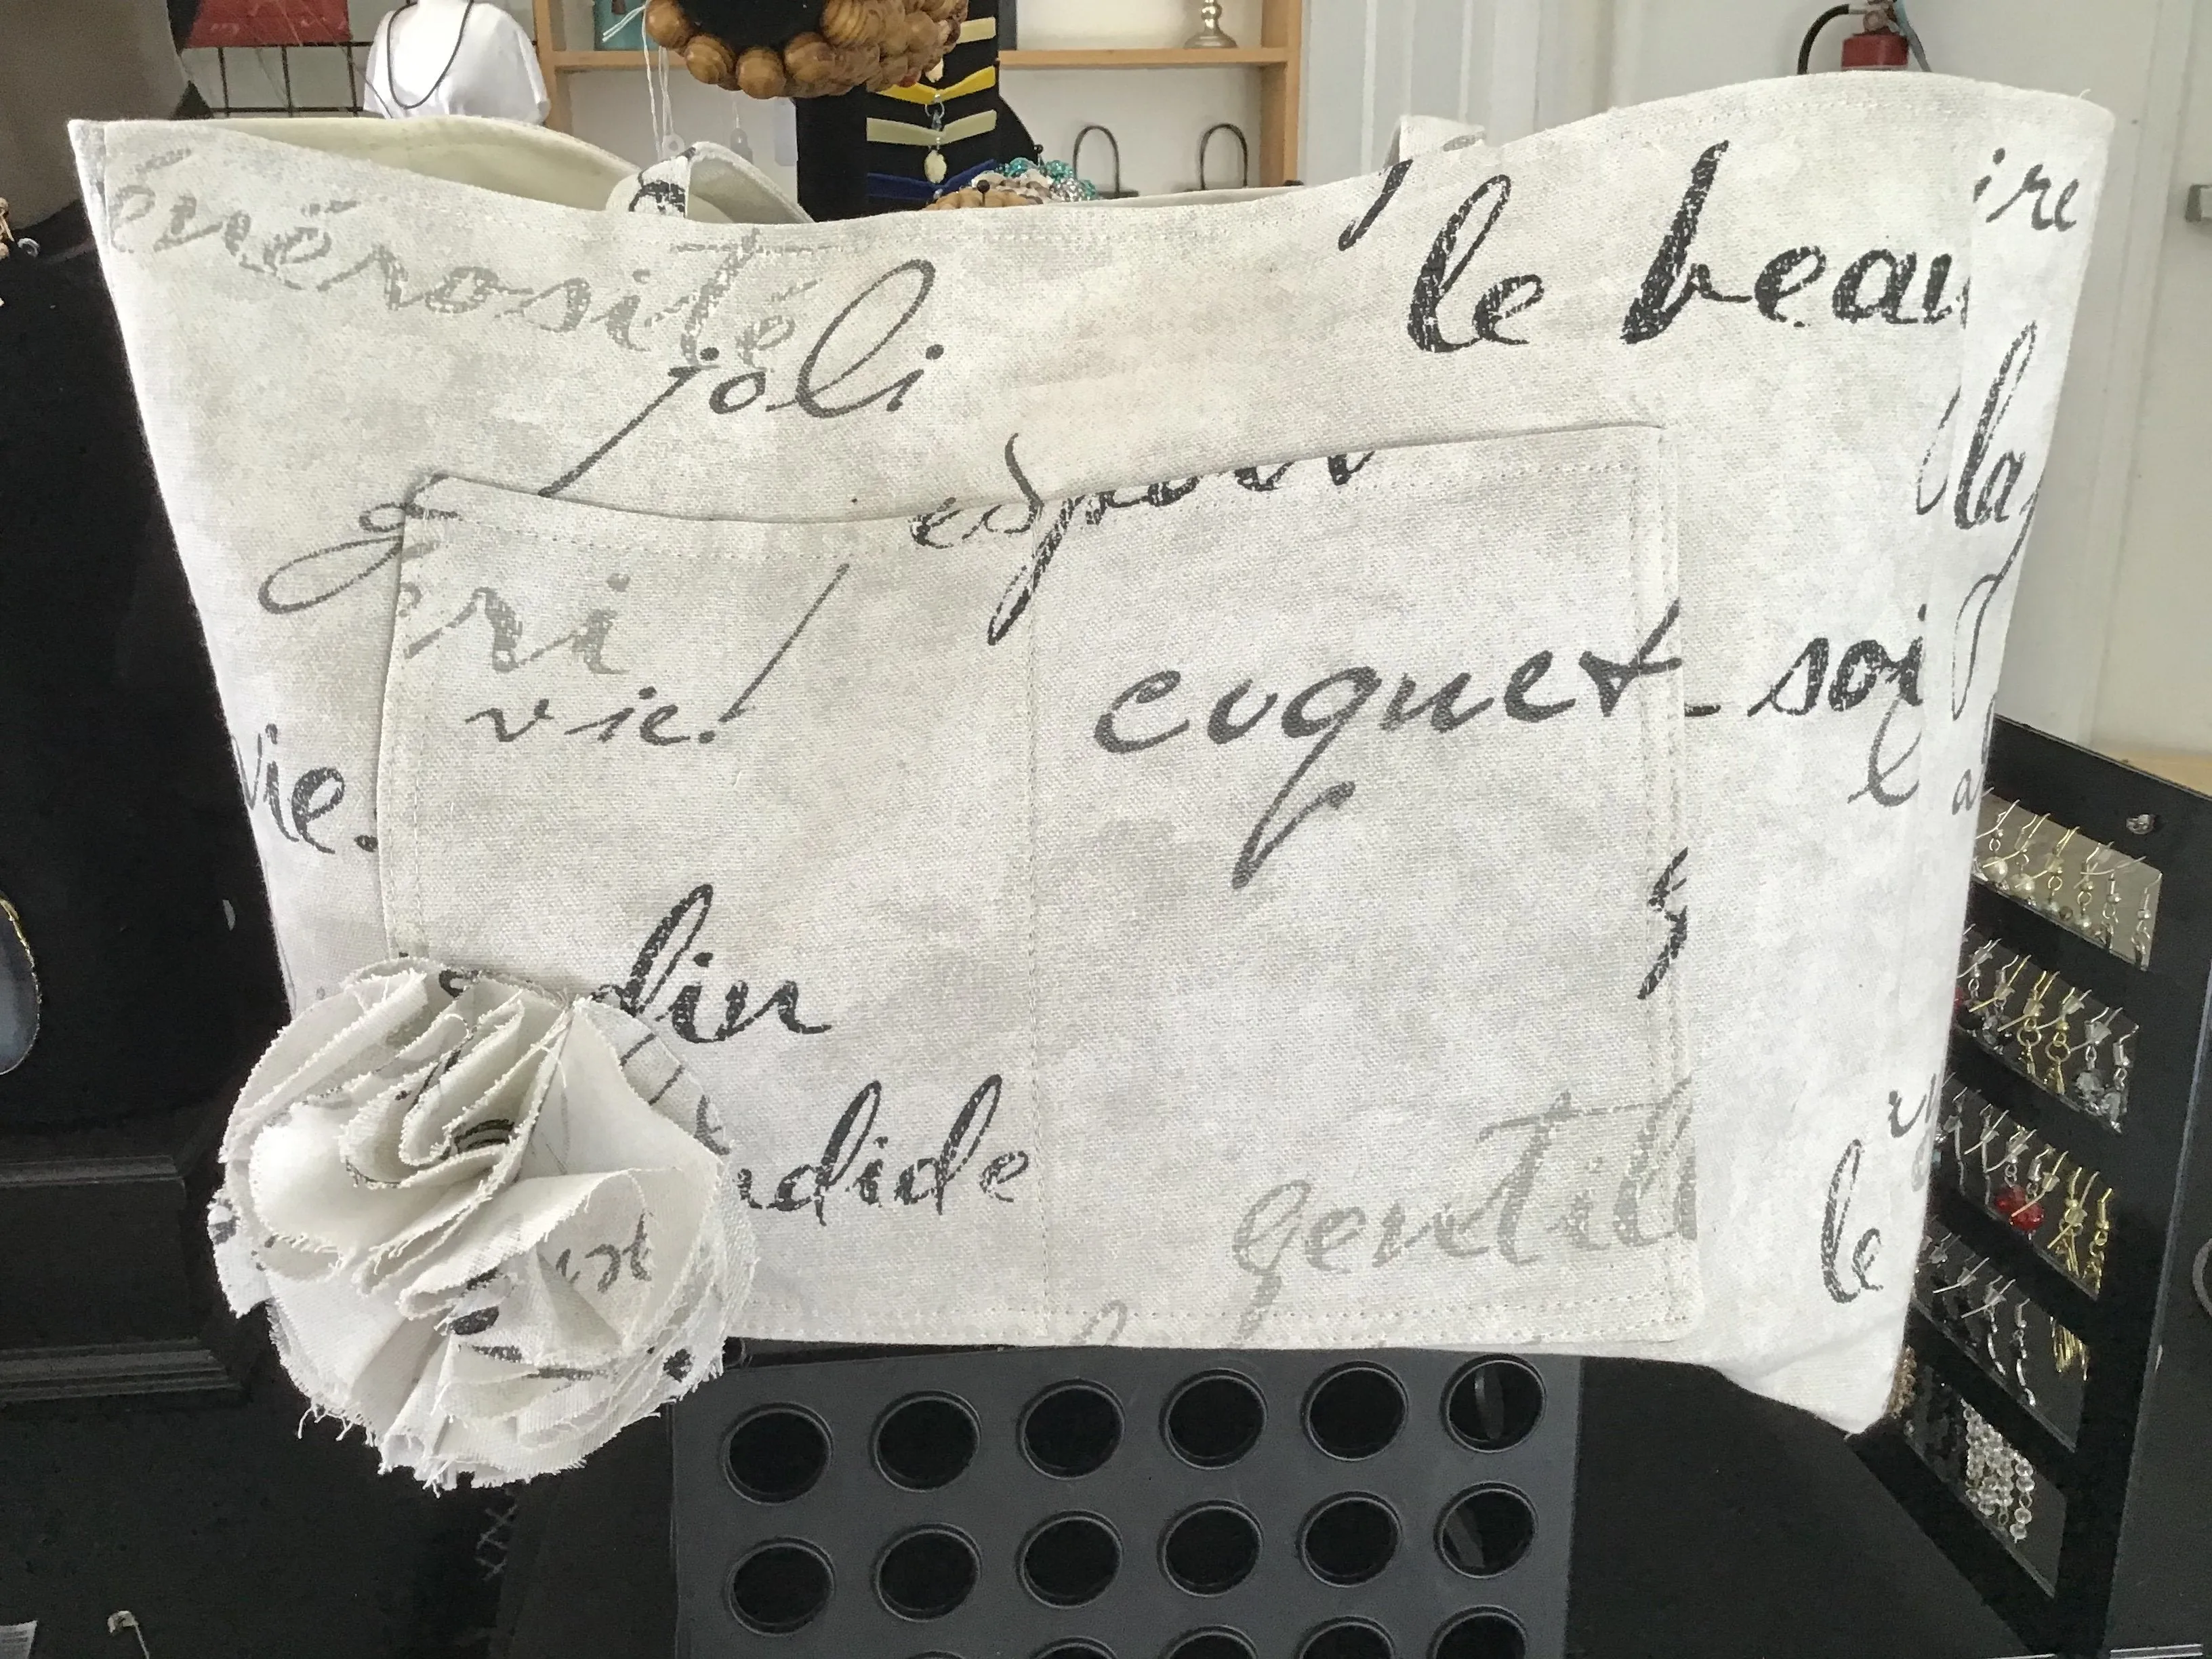 énérosité
joli
le beau
ire
la
espoir
ri
vie.
coquet soi
vie.
lin
ndide
gentil
le